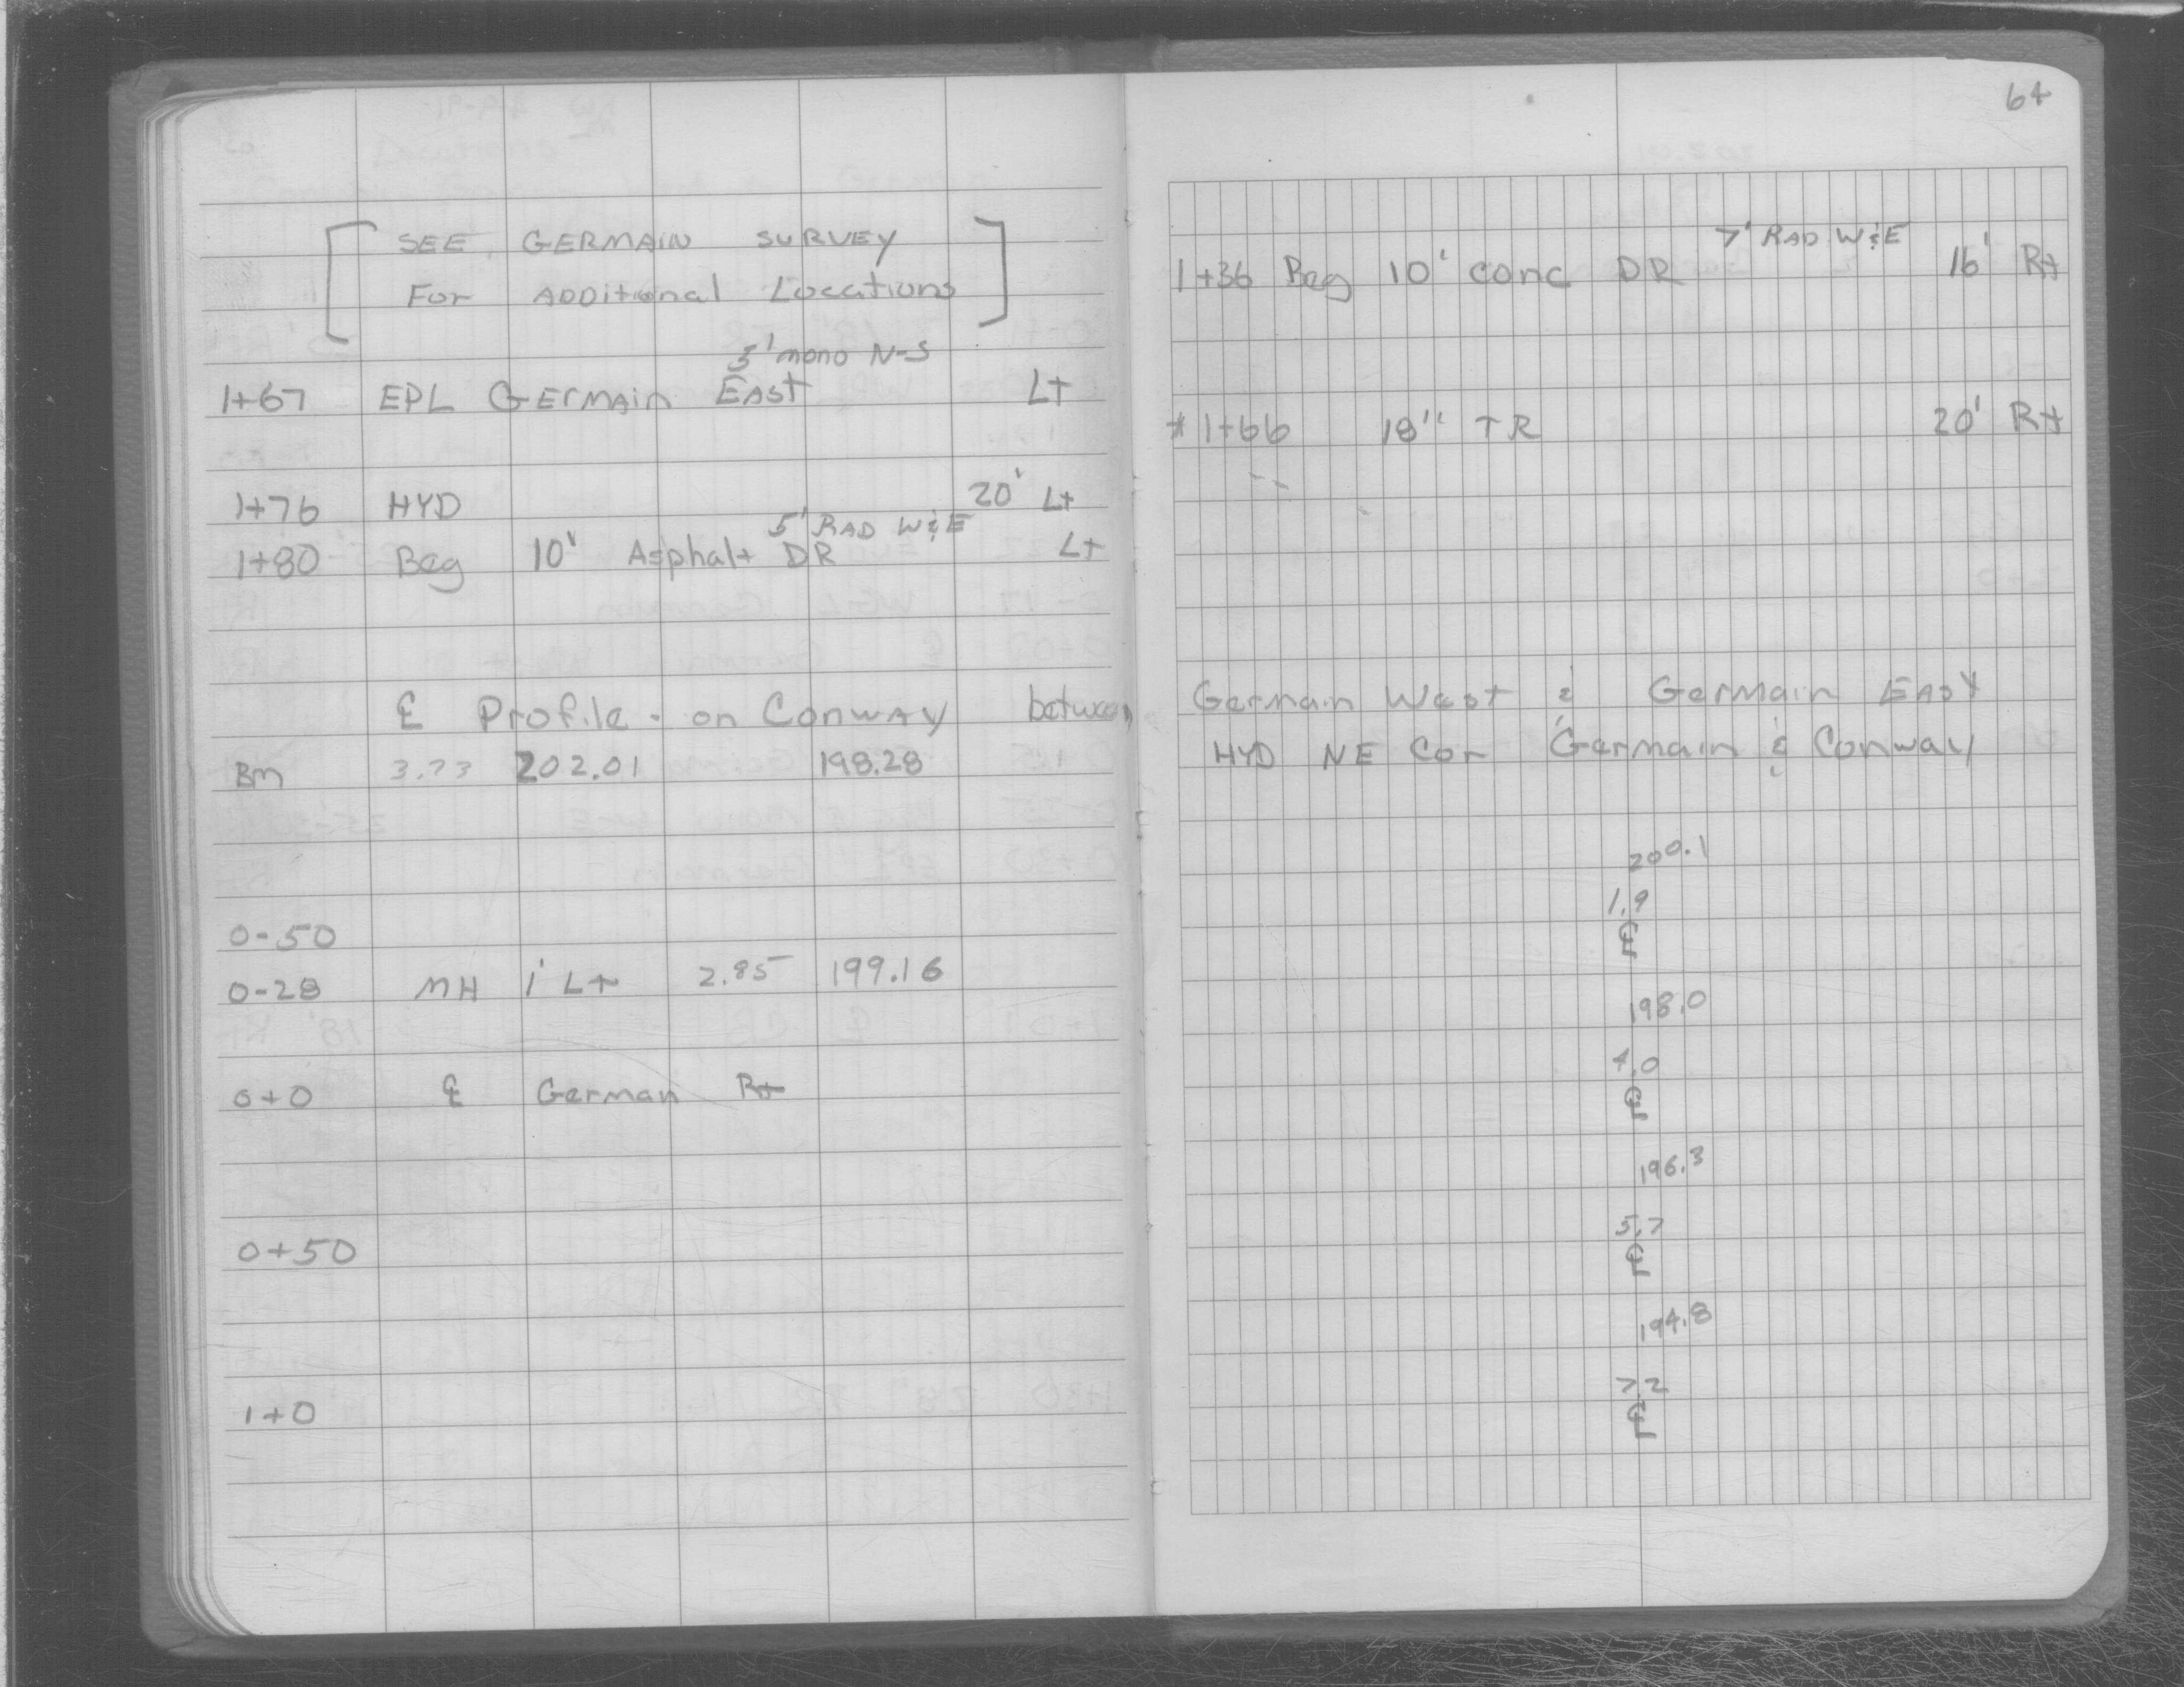 [SEE GERMAIN SURVEY
For ADDitional Locations]
5' mono N-S
1+67 EPL GErmain EAST Lt
1+76 HYD 20' Lt
5' RAD W&E
1+80 Beg 10' Asphalt DR Lt
℄ Profile - on Conway between
Bm 3.73 202.01 198.28
0-50
0-28 MH 1' Lt 2.85 199.16
0+0 ℄ German Rt
0+50
1+0
64
7' RAD W&E
1+36 Beg 10' conc DR 16' Rt
*1+66 18" TR 20' Rt
German West & Germain East
HYD NE Cor Germain & Conway
200.1
1.9
℄
198.0
4.0
℄
196.3
5.7
℄
194.8
7.2
℄